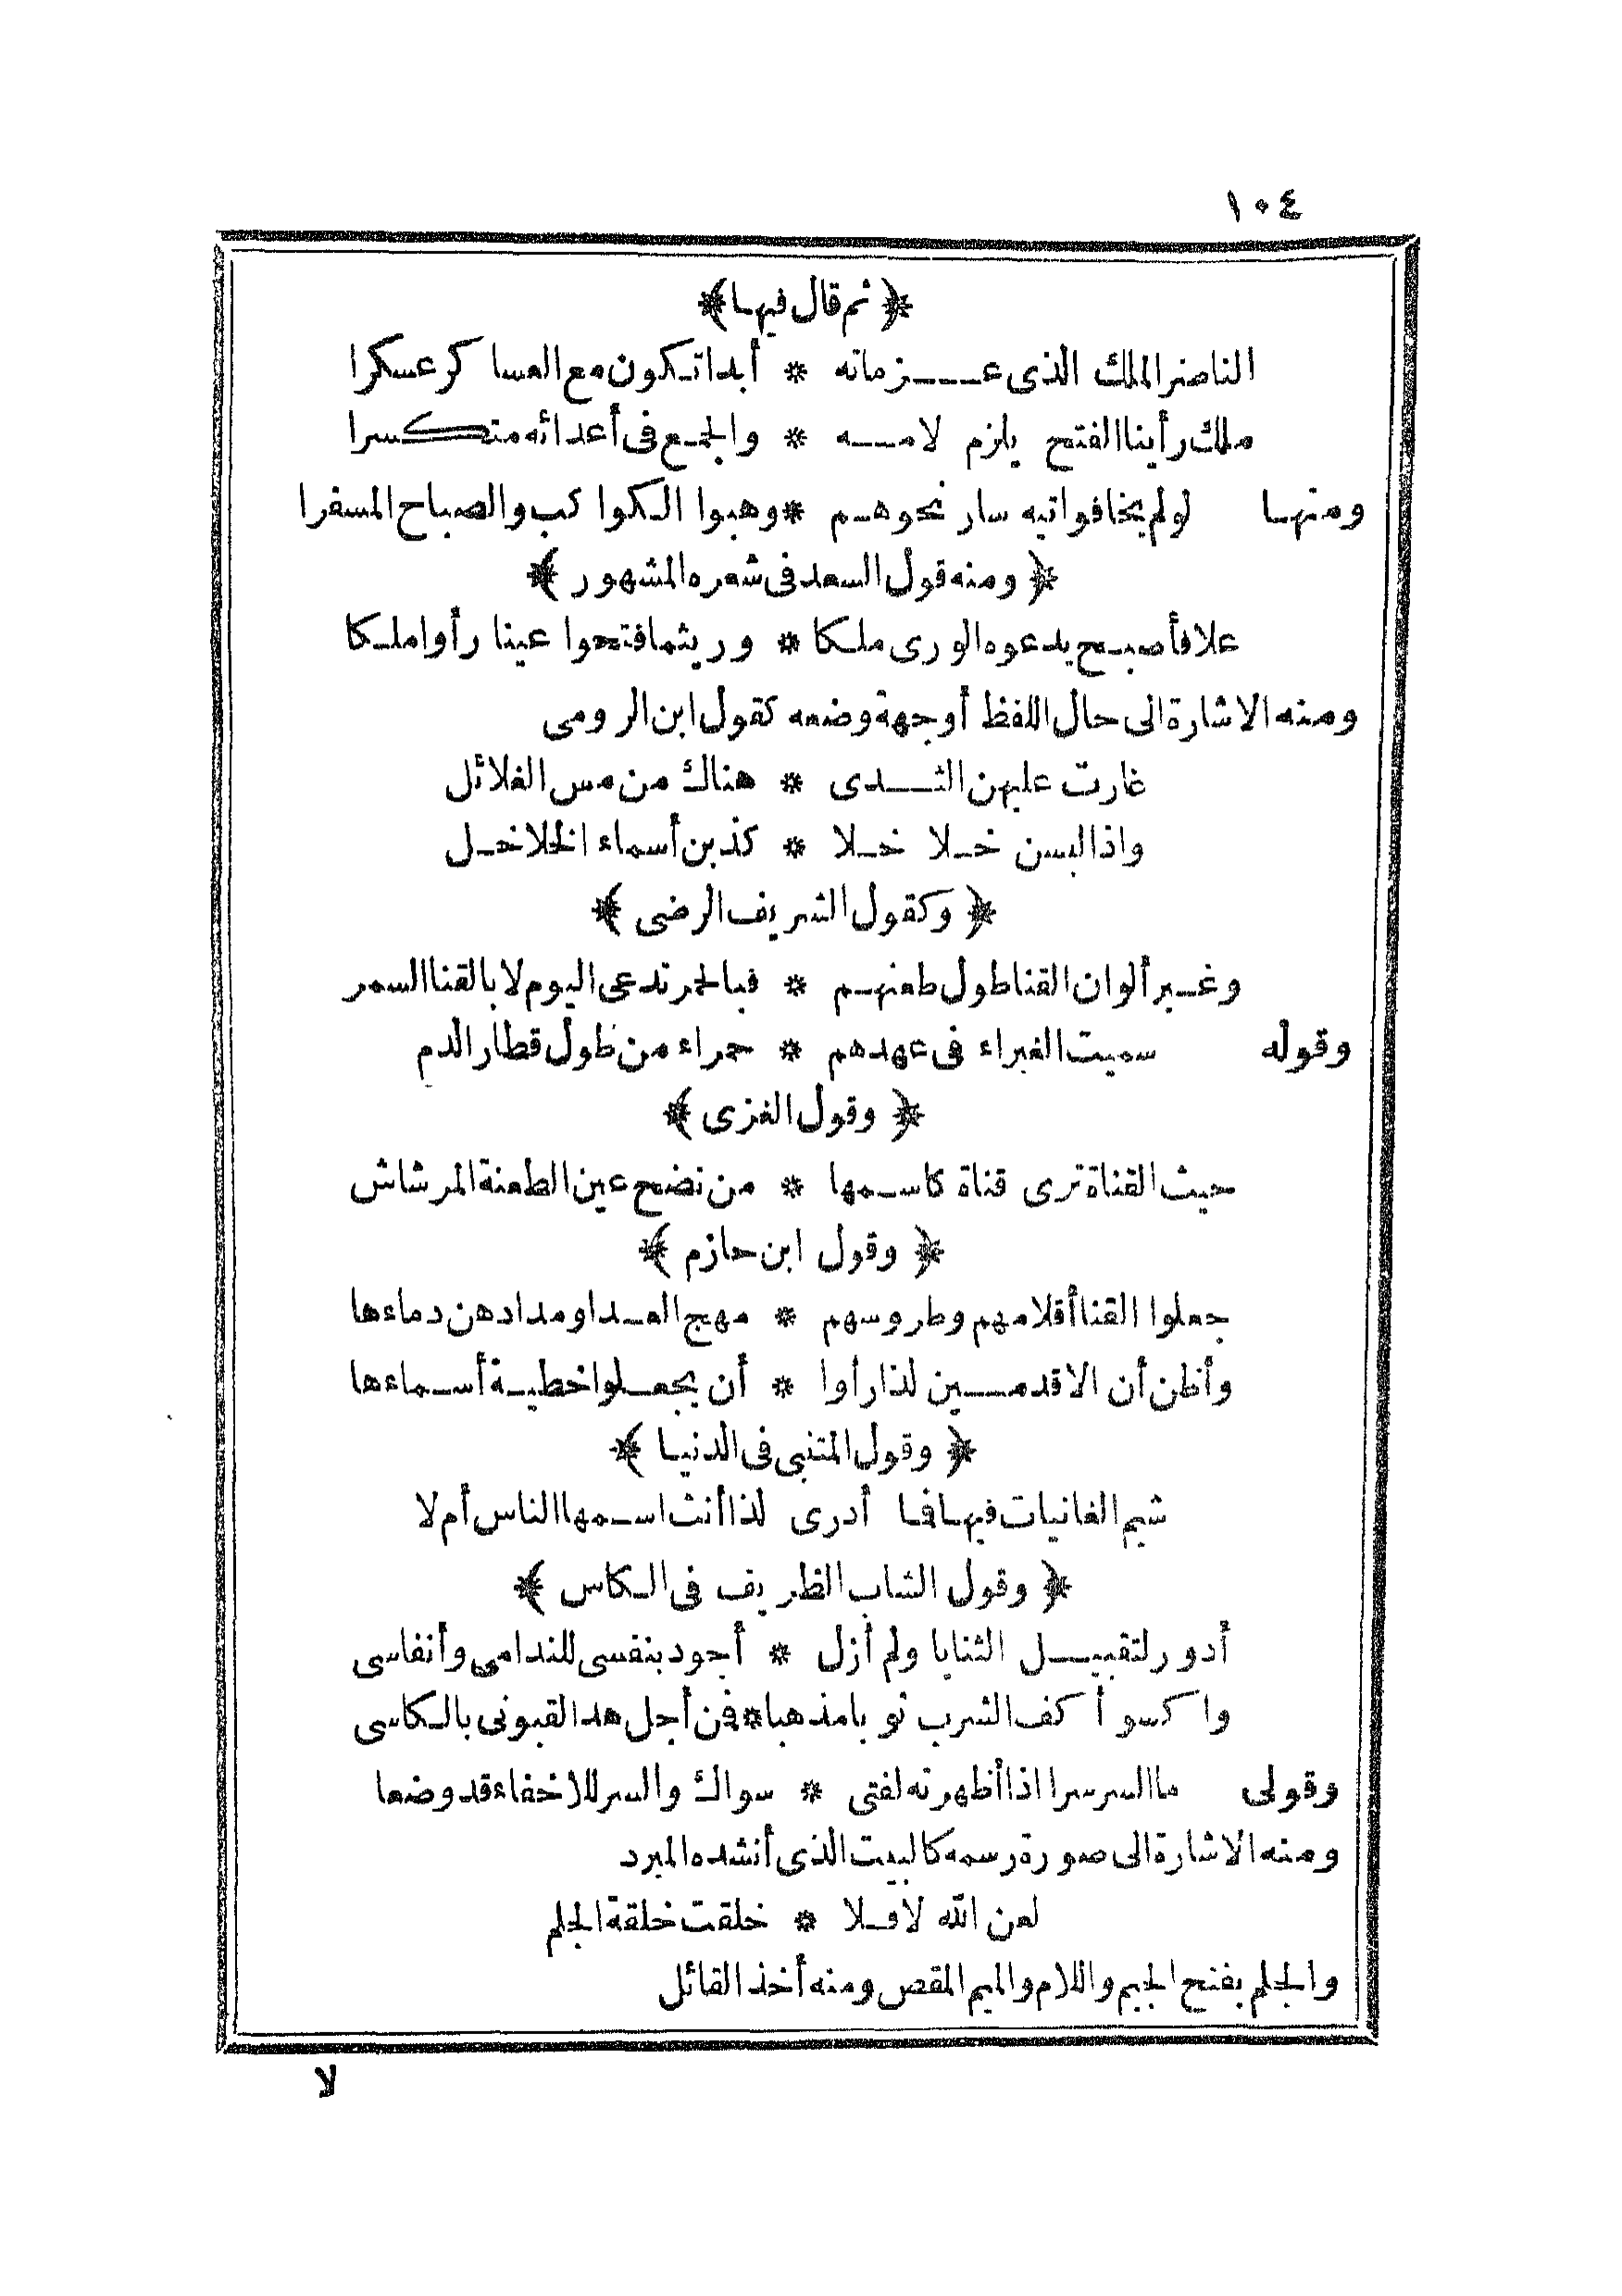 ١٠٤
﴿ ثم قال فيها ﴾
الناصر الملك الذى عـزماته * أبدا تكون مع العساكر عسكرا
ملك رأينا الفتح يلزم لامـه * والجمع فى أعدائه متكسرا
ومنها لو لم يخافوا تيه سار نحوهم * وهبوا الكواكب والصباح المسفرا
﴿ ومنه قول السعد فى شعره المشهور ﴾
علا فأصبح يدعوه الورى ملكا * وريثما فتحوا عينا رأوا ملكا
ومنه الاشارة الى حال اللفظ أو جهة وضعه كقول ابن الرومى
غارت عليهن الثدى * هناك من مس الغلائل
واذا لبسن خلا خلا * كذبن أسماء الخلاخل
﴿ وكقول الشريف الرضى ﴾
وغير ألوان القنا طول طعنهم * فبالحمر تدعى اليوم لا بالقنا السمر
وقوله سميت الغبراء فى عهدهم * حمراء من طول قطار الدم
﴿ وقول الغزى ﴾
حيث القناة ترى قناة كاسمها * من نضح عين الطعنة المرشاش
﴿ وقول ابن حازم ﴾
جعلوا القنا أقلامهم وطروسهم * مهج العدا ومدادهن دماءها
وأظن أن الاقدمين لذا رأوا * أن يجعلوا خطية أسماءها
﴿ وقول المتنبى فى الدنيا ﴾
شيم الغانيات فيها فما أدرى لذا أنث اسمها الناس أم لا
﴿ وقول الشاب الظريف فى الكاس ﴾
أدور لتقبيل الثنايا ولم أزل * أجود بنفسى للندامى وأنفاسى
واكسو أكف الشرب ثوبا مذهبا * فمن أجل هذا لقبونى بالكاسى
وقولى ما السر سرا اذا أظهرته لفتى * سواك والسر للاخفاء قد وضعا
ومنه الاشارة الى صورة رسمه كالبيت الذى أنشده المبرد
لعن الله لا فلا * خلقت خلقة الجلم
والجلم بفتح الجيم واللام والميم المقص ومنه أخذ القائل
لا